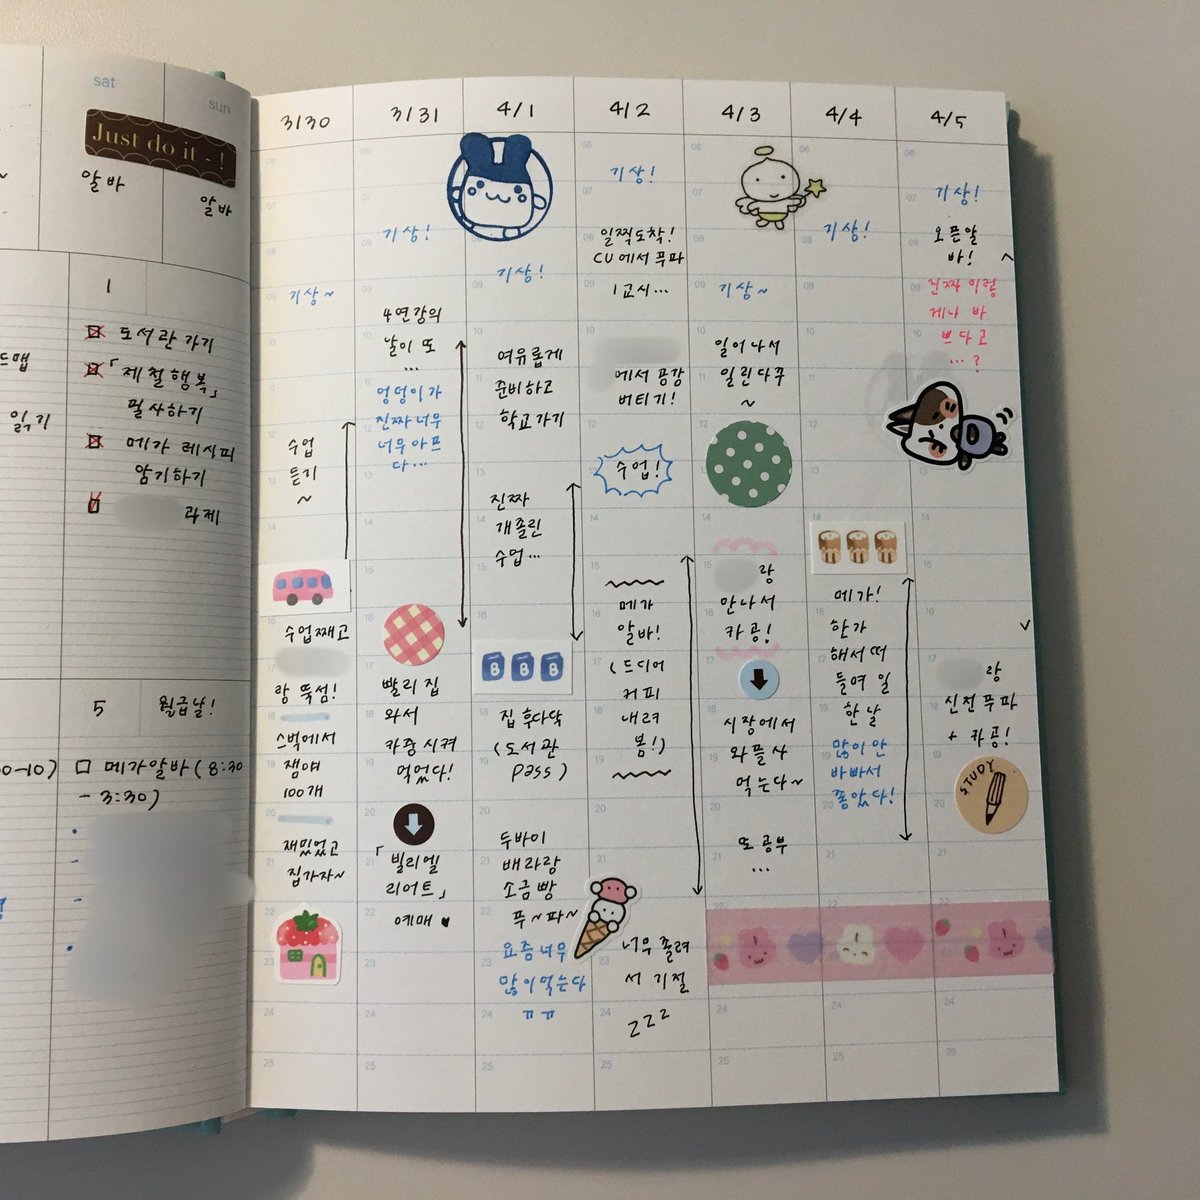 sat
sun
Just do it - !
알바
알바
1
도서관 가기
「제철행복」
필사하기
메가 레시피
암기하기
과제
드맵
읽기
5 월급날!
0-10)
메가알바 (8:30
- 3:30)
3/30
기상~
수업
듣기
~
수업째고
랑 뚝섬!
스벅에서
잼얘
100개
재밌었고
집가자~
3/31
기상!
4연강의
날이 또
...
엉덩이가
진짜너무
너무아프
다...
빨리 집
와서
카중시켜
먹었다!
「빌리엘
리어트」
예매 ♥
4/1
기상!
여유롭게
준비하고
학교가기
진짜
개졸린
수업...
B B B
집 후다닥
(도서관
pass)
두바이
배라랑
소금빵
푸~파~
요즘너무
많이먹는다
ㅠㅠ
4/2
기상!
일찍도착!
CU에서 푸파
1교시...
에서 공강
버티기!
수업!
메가
알바!
(드디어
커피
내려
봄!)
너무 졸려
서 기절
zzz
4/3
기상~
일어나서
밀린다꾸
~
랑
만나서
카공!
시장에서
와플사
먹는다~
또 공부
...
4/4
기상!
메가!
한가
해서떠
들며 일
한 날
많이 안
바빠서
좋았다!
4/5
기상!
오픈알
바!
진짜 이렇
게나 바
쁘다고
...?
랑
신전푸파
+ 카공!
STUDY